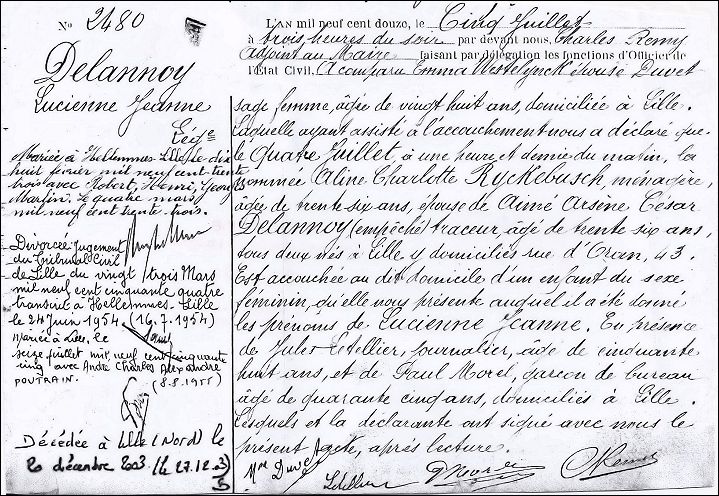 No 2480
Delannoy
Lucienne Jeanne
Lége
Mariée à Hellemmes-Lille, le dix
huit février mil neuf cent trente
trois avec Robert, Henri, Georges
Martin. Le quatre mars
mil neuf cent trente-trois.
Divorcée Jugement
du Tribunal Civil
de Lille du vingt trois Mars
mil neuf cent cinquante quatre
transcrit à Hellemmes-Lille
le 24 Juin 1954 (16.7.1954)
Mariée à Lille, le
seize juillet mil neuf cent cinquante
cinq avec André Charles Alexandre
POUTRAIN. (8.8.1955)
Décédée à Lille (Nord) le
20 décembre 2003 (le 27.12.03)
L'AN mil neuf cent douze, le Cinq Juillet
à trois heures du soir par devant nous, Charles Remy
Adjoint au Maire faisant par délégation les fonctions d'Officier de
l'État Civil, A comparu Emma Westelynck épouse Duvet
sage femme, âgée de vingt huit ans, domiciliée à Lille.
Laquelle ayant assisté à l'accouchement nous a déclaré que
le Quatre Juillet, à une heure et demie du matin, la
nommée Aline Charlotte Ryckebusch, ménagère,
âgée de trente six ans, épouse de Aimé Arsène César
Delannoy (empêché) traceur, âgé de trente six ans,
tous deux nés à Lille y domiciliés rue d'Oran, 43.
Est accouchée au dit domicile d'un enfant du sexe
féminin, qu'elle nous présente auquel il a été donné
les prénoms de Lucienne Jeanne. En présence
de Jules Letellier, journalier, âgé de cinquante
huit ans, et de Paul Morel, garçon de bureau
âgé de quarante cinq ans, domiciliés à Lille.
Lesquels et la déclarante ont signé avec nous le
présent Acte, après lecture.
Mme Duvet Letellier P Morel C Remy